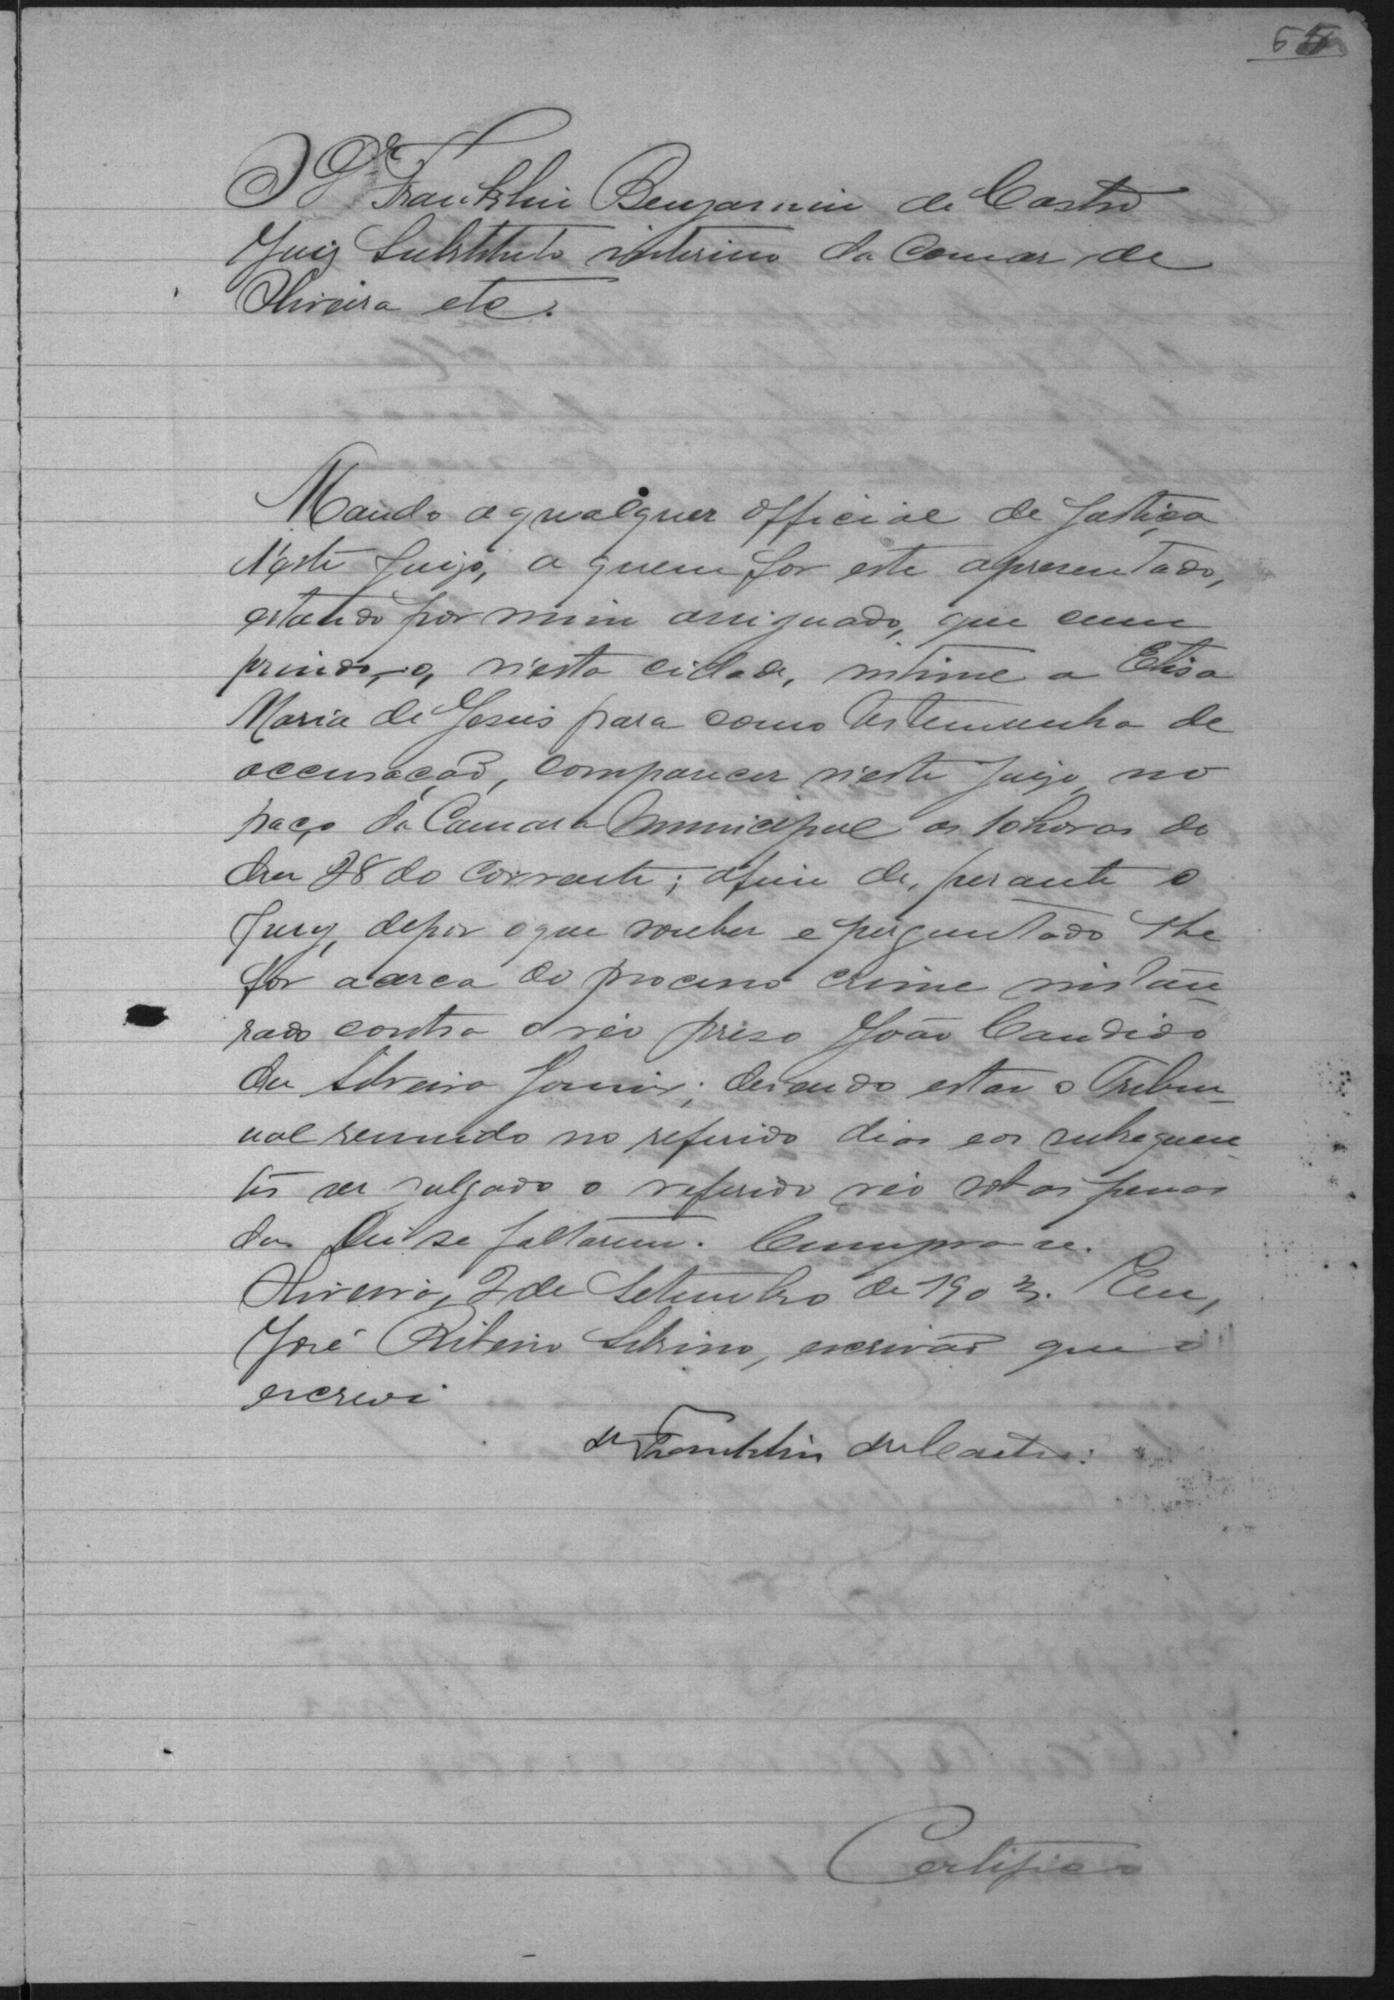 O Dr Franklin Benjamin de Castro
Juiz Substituto interino da Comar de
Oliveira etc.
Mando a qualquer official de Justiça
N'este Juizo, a quem for este apresentado,
estando por mim assignado, que cum
prindo-o, n'esta cidade, intime a Elisa
Maria de Jesus para como testemunha de
accusação, comparecer n'este Juizo, no
paço da Camara Municipal as 10 horas do
dia 28 do corrente; afim de, perante o
Jury, depor o que souber e perguntado lhe
for acerca do processo crime instau-
rado contra o réo preso João Candido
da Silveira Junior; devendo estar o Tribu-
nal reunido no referido dia e os subsequen-
tes ser julgado o referido réo sob as penas
da Lei se faltarem. Cumpra-se.
Oliveira, 2 de Setembro de 1903. Eu,
José Ribeiro, escrivão que o
escrevi
Franklin de Castro.
Certifico